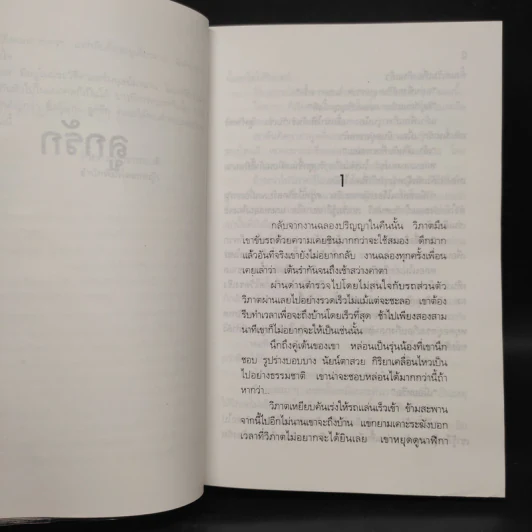 ลูกรัก
1
กลับจากงานฉลองปริญญาในคืนนั้น วิภาตมึน
เขาขับรถด้วยความเคยชินมากกว่าจะใช้สมอง ดึกมาก
แล้วอันที่จริงเขายังไม่อยากกลับ งานฉลองทุกครั้งเพื่อน
เคยเล่าว่า เต้นรำกันจนถึงเช้าสว่างคาตา
ผ่านด่านตำรวจไปโดยไม่สนใจกับรถส่วนตัว
วิภาตผ่านเลยไปอย่างรวดเร็วไม่แม้แต่จะชะลอ เขาต้อง
รีบทำเวลาเพื่อจะถึงบ้านโดยเร็วที่สุด ช้าไปเพียงสองสาม
นาทีเขาก็ไม่อยากจะให้เป็นเช่นนั้น
นึกถึงคู่เต้นของเขา หล่อนเป็นรุ่นน้องที่เขานึก
ชอบ รูปร่างบอบบาง นัยน์ตาสวย กิริยาเคลื่อนไหวเป็น
ไปอย่างธรรมชาติ เขาน่าจะชอบหล่อนได้มากกว่านี้ถ้า
หากว่า...
วิภาตเหยียบคันเร่งให้รถแล่นเร็วเข้า ข้ามสะพาน
จากนี้ไปอีกไม่นานเขาจะถึงบ้าน แขกยามเคาะระฆังบอก
เวลาที่วิภาตไม่อยากจะได้ยินเลย เขาหยุดดูนาฬิกา